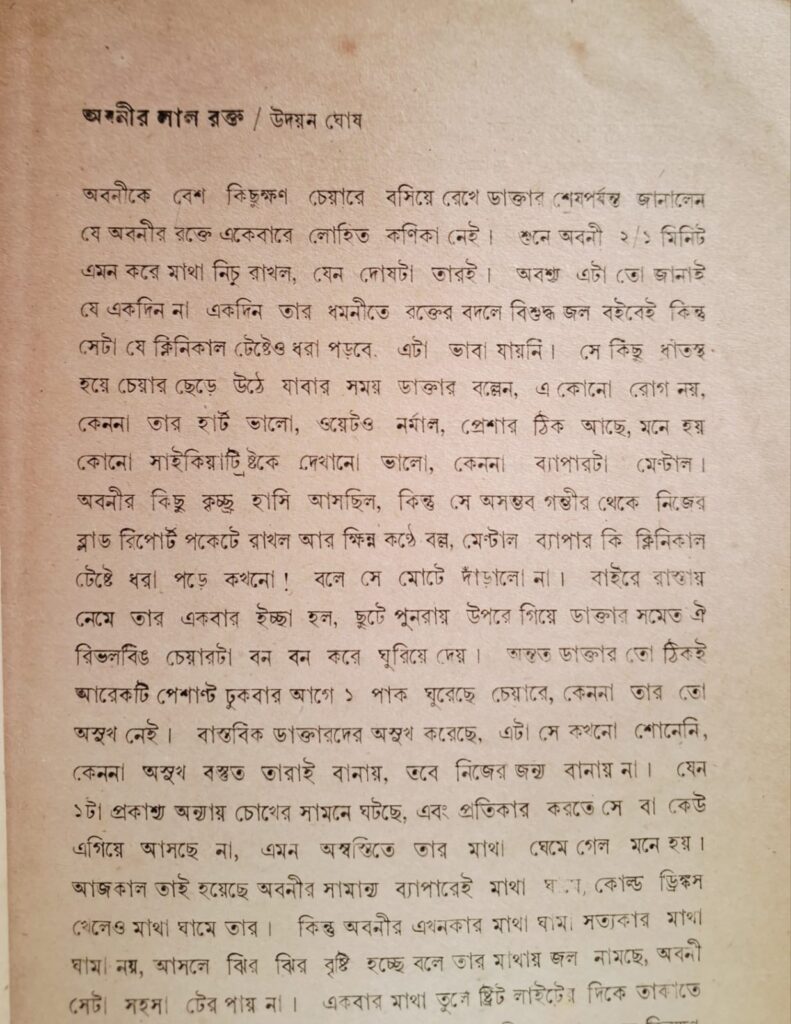 অবনীর লাল রক্ত / উদয়ন ঘোষ
অবনীকে বেশ কিছুক্ষণ চেয়ারে বসিয়ে রেখে ডাক্তার শেষপর্যন্ত জানালেন
যে অবনীর রক্তে একেবারে লোহিত কণিকা নেই। শুনে অবনী ২/১ মিনিট
এমন করে মাথা নিচু রাখল, যেন দোষটা তারই। অবশ্য এটা তো জানাই
যে একদিন না একদিন তার ধমনীতে রক্তের বদলে বিশুদ্ধ জল বইবেই কিন্তু
সেটা যে ক্লিনিকাল টেষ্টেও ধরা পড়বে. এটা ভাবা যায়নি। সে কিছু ধাতস্থ
হয়ে চেয়ার ছেড়ে উঠে যাবার সময় ডাক্তার বল্লেন, এ কোনো রোগ নয়,
কেননা তার হার্ট ভালো, ওয়েটও নর্মাল, প্রেশার ঠিক আছে, মনে হয়
কোনো সাইকিয়াট্রিষ্টকে দেখানো ভালো, কেননা ব্যাপারটা মেণ্টাল।
অবনীর কিছু কুচ্ছ্র হাসি আসছিল, কিন্তু সে অসম্ভব গম্ভীর থেকে নিজের
ব্লাড রিপোর্ট পকেটে রাখল আর ক্ষিন্ন কণ্ঠে বল্ল, মেণ্টাল ব্যাপার কি ক্লিনিকাল
টেষ্টে ধরা পড়ে কখনো! বলে সে মোটে দাঁড়ালো না। বাইরে রাস্তায়
নেমে তার একবার ইচ্ছা হল, ছুটে পুনরায় উপরে গিয়ে ডাক্তার সমেত ঐ
রিভলবিঙ চেয়ারটা বন বন করে ঘুরিয়ে দেয়। অন্তত ডাক্তার তো ঠিকই
আরেকটি পেশাণ্ট ঢুকবার আগে ১ পাক ঘুরেছে চেয়ারে, কেননা তার তো
অসুখ নেই। বাস্তবিক ডাক্তারদের অসুখ করেছে, এটা সে কখনো শোনেনি,
কেননা অসুখ বস্তুত তারাই বানায়, তবে নিজের জন্য বানায় না। যেন
১টা প্রকাশ্য অন্যায় চোখের সামনে ঘটছে, এবং প্রতিকার করতে সে বা কেউ
এগিয়ে আসছে না, এমন অস্বস্তিতে তার মাথা ঘেমে গেল মনে হয়।
আজকাল তাই হয়েছে অবনীর সামান্য ব্যাপারেই মাথা ঘামে, কোল্ড ড্রিঙ্কস
খেলেও মাথা ঘামে তার। কিন্তু অবনীর এখনকার মাথা ঘামা সত্যকার মাথা
ঘামা নয়, আসলে ঝির ঝির বৃষ্টি হচ্ছে বলে তার মাথায় জল নামছে, অবনী
সেটা সহসা টের পায় না। একবার মাথা তুলে ষ্ট্রিট লাইটের দিকে তাকাতে